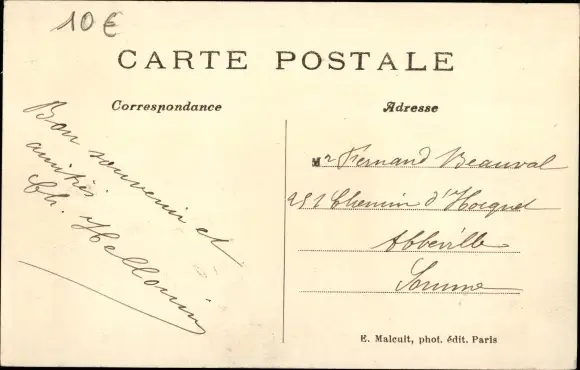 10€
CARTE POSTALE
Correspondance
Adresse
Bon souvenir et
amitiés.
Ch. Hellouin
Mr Fernand Beauval
251 Chemin d'Hocquet
Abbeville
Somme
E. Malcuit, phot. édit. Paris